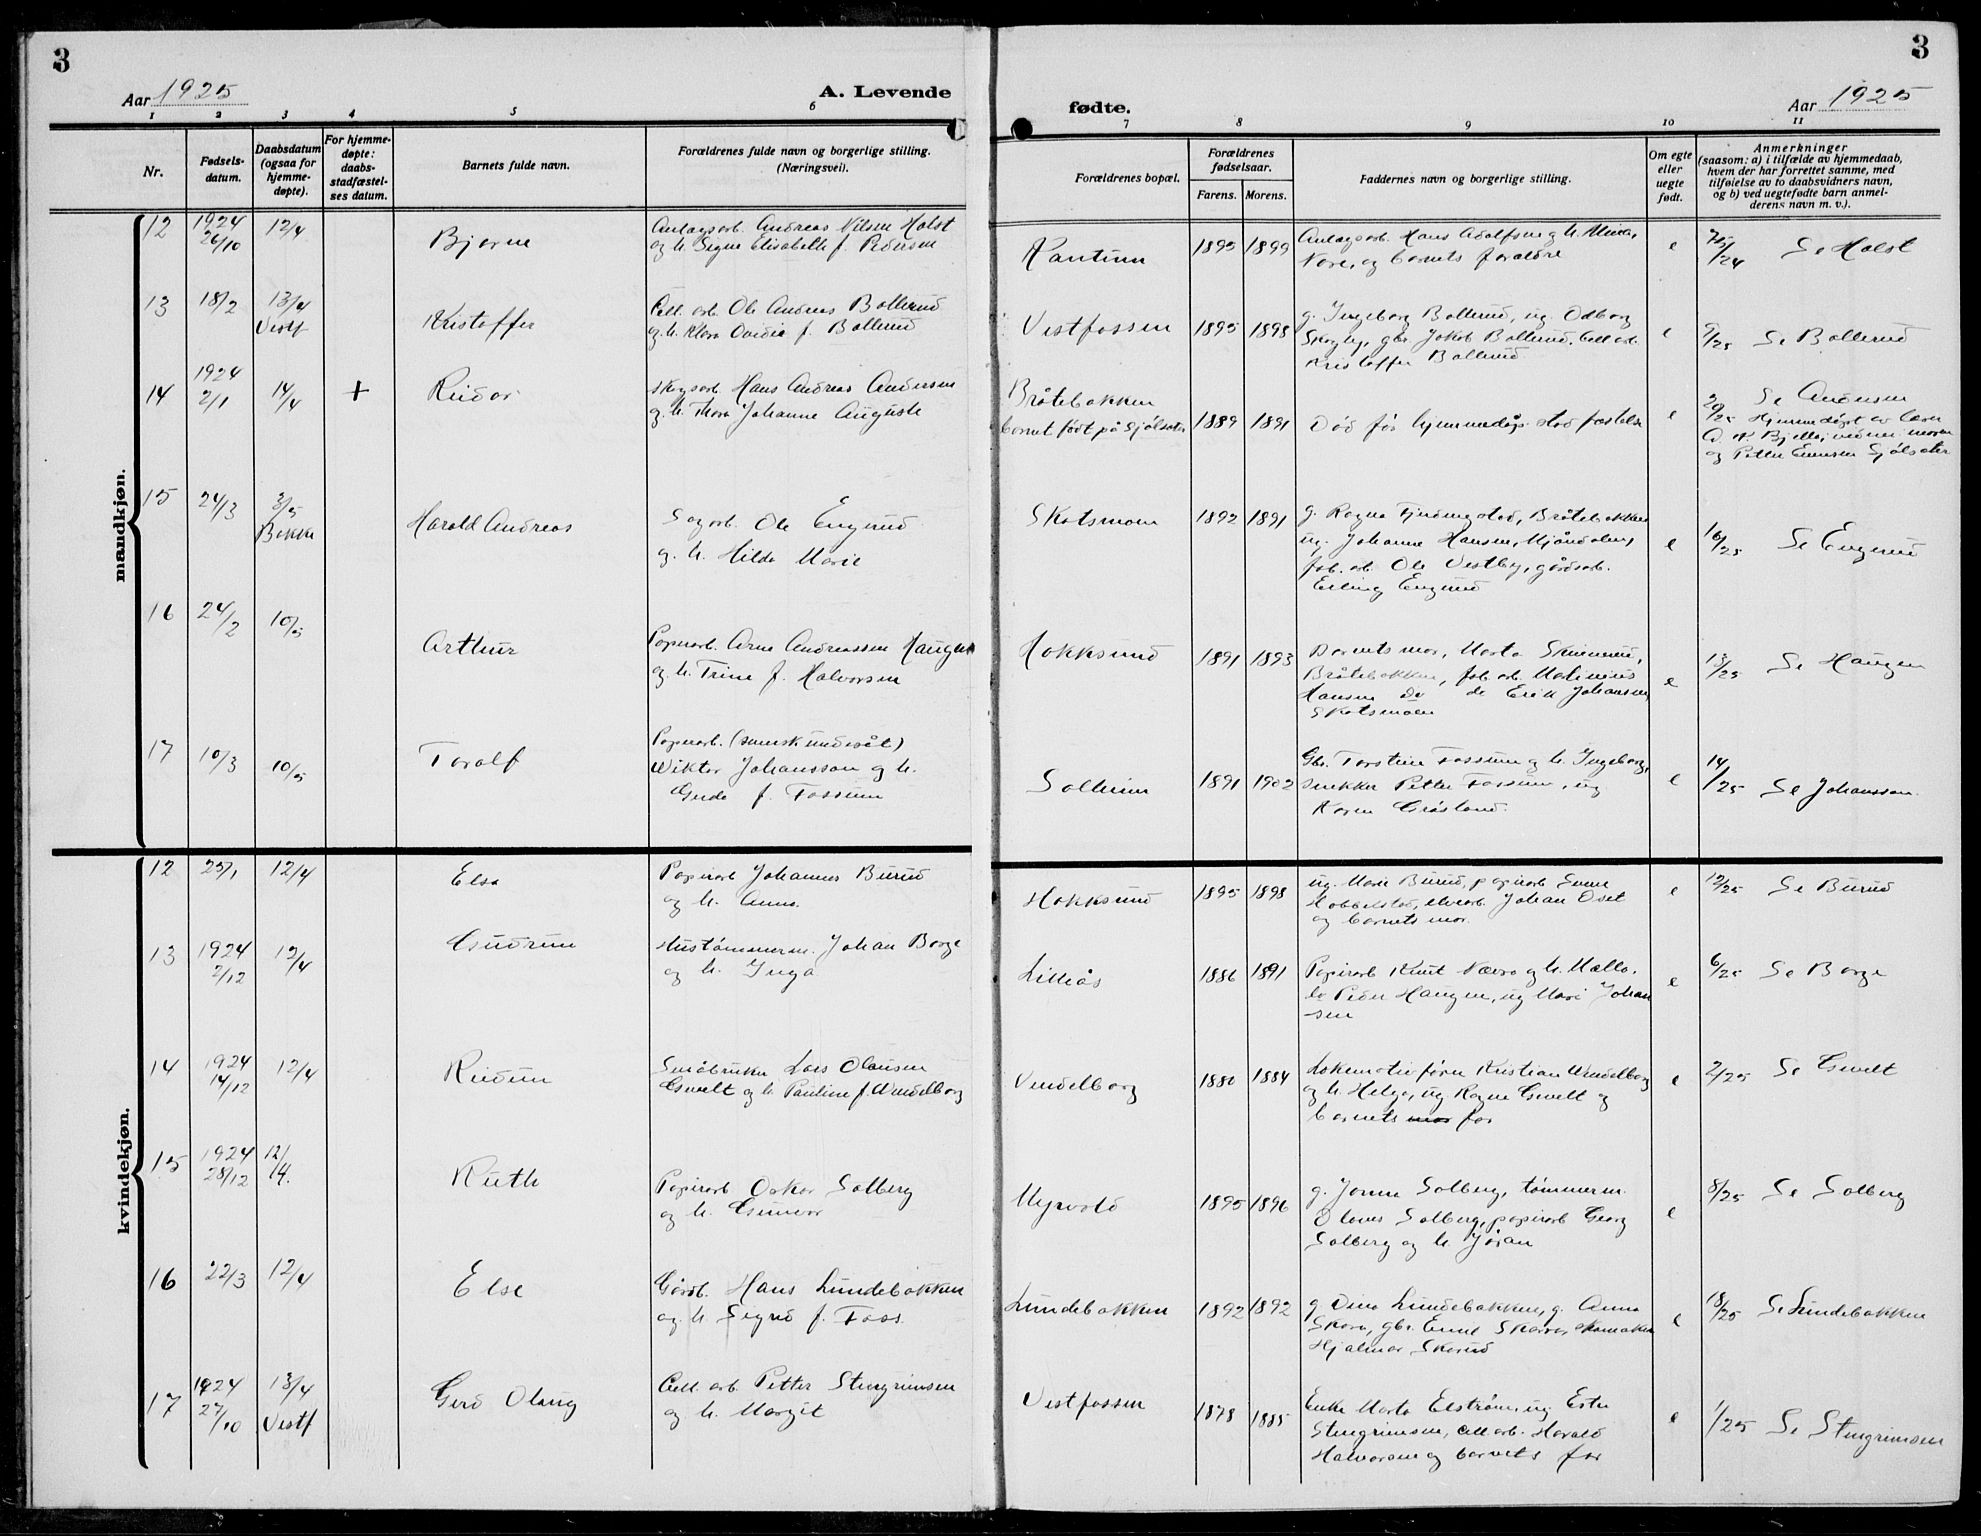 3
Aar 1925
A. Levende
1 2 3 4 5 6
Nr.
Fødsels-
datum.
Daabsdatum
(ogsaa for
hjemme-
døpte).
For hjemme-
døpte:
daabs-
stadfæstel-
ses datum.
Barnets fulde navn.
Forældrenes fulde navn og borgerlige stilling.
(Næringsvei).
mandkjøn.
12 1924 26/10 12/4 Bjarne
Anlagsarb. Andreas Nilsen Holst
og h. Signe Elisabeth f. Pedersen
13 18/2 13/4 Vestf Kristoffer
Cell. arb. Ole Andreas Bollerud
og h. Klara Ovidia f. Bollerud
14 1924 2/1 14/4 + Reidar
skogsarb. Hans Andreas Andersen
og h. Thora Johanne Auguste
15 24/3 3/5 Bakke Harald Andreas
Sagarb. Ole Engerud
og h. Hilda Marie
16 24/2 10/5 Arthur
Papirarb. Arne Andreassen Haugen
og h. Trine f. Halvorsen
17 10/3 10/5 Toralf
Papirarb. (svensk undersåt)
Wiktor Johansson og h.
Gerda f. Fossum
kvindekjøn.
12 25/1 12/4 Elsa
Papirarb Johannes Burud
og h. Anna
13 1924 2/12 12/4 Gudrun
Hustømmerm. Johan Borge
og h. Inga
14 1924 14/12 12/4 Reidun
Småbruker Lars Olausen
Gsvelt og h. Pauline f. Wendelborg
15 1924 28/12 12/4. Ruth
Papirarb Oskar Solberg
og h. Gunvor
16 22/3 12/4 Else
Gårdb. Hans Lundebakken
og h. Sigrid f. Foss
17 1924 27/10 13/4 Vestf Gerd Olaug
Cell. arb. Petter Stengrimsen
og h. Margit
3
fødte.
Aar 1925
7 8 9 10 11
Forældrenes bopæl.
Forældrenes
fødselsaar.
Farens. Morens.
Faddernes navn og borgerlige stilling.
Om egte
eller
uegte
født.
Anmerkninger
(saasom: a) i tilfælde av hjemmedaab,
hvem der har forrettet samme, med
tilføielse av to daabsvidners navn,
og b) ved uegtefødte barn anmel-
derens navn m. v.).
1895 1899 Anlagsarb. Hans Adolfsen og h.
Nore, og barnets forældre
e Se Holst
Vestfossen 1895 1898 g. Ingeborg Bollerud, ug. Odborg
Skogly, gbr. Jakob Bollerud, Cell arb.
Kristoffer Bollerud
e 9/25 Se Bollerud
Bråtebakken
barnet født på Sjølsæter 1889 1891 Død før hjemmedåps stadfæstelse
e 20/25 Se Andersen
Hjemmedøpt av lærer
Bjella, vidner moren
og Petter Evensen Sjølsæter
Skotsmoen 1892 1891 g. Ragna Tjødingstad, Bråtebakken
ug. Johanne Hansen, Mjøndalen,
fab. arb. Ole Vestby, gårdsarb.
Erling Engerud
e 16/25 Se Engerud
Hokksund 1891 1893 Barnets mor, Marta Skinnerud,
Bråtebakken, fab. arb. Matinius
Hansen do do Erik Johansen,
Skotsmoen
e 13/25 Se Haugen
Solheim 1891 1902 Gbr. Torstein Fossum og h. Ingeborg,
snekker Petter Fossum, ug
Karen Gråsland.
e 14/25 Se Johansson.
Hokksund 1895 1898 ug. Marie Burud, papirarb Svene
Hobbelstad, elvearb. Johan Oset
og barnets mor.
e 12/25 Se Burud
Lilleås 1886 1891 Papirarb Knut Nævra og h. Malla,
do Peder Haugen, ug Mari Johan
-sen
e 6/25 Se Borge
Vendelborg 1880 1884 Lokomotivfører Kristian Wendelborg
og h. Helga, ug Ragna Gsvelt og
barnets mor far
e 2/25 Se Gsvelt
Myrvold 1895 1896 g. Jonna Solberg, tømmerm.
Olaves Solberg, papirarb Georg
Solberg og h. Jøran
e 8/25 Se Solberg
Lundebakken 1892 1892 g. Dina Lundebakken, g. Anna
Skara, gbr. Emil Skarra, skomaker
Hjalmar Skarud
e 18/25 Se Lundebakken
Vestfossen 1878 1885 Enke Marta Elstrøm, ug Ester
Stengrimsen, Cell arb. Harald
Halvorsen og barnets far
e 1/25 Se Stengrimsen